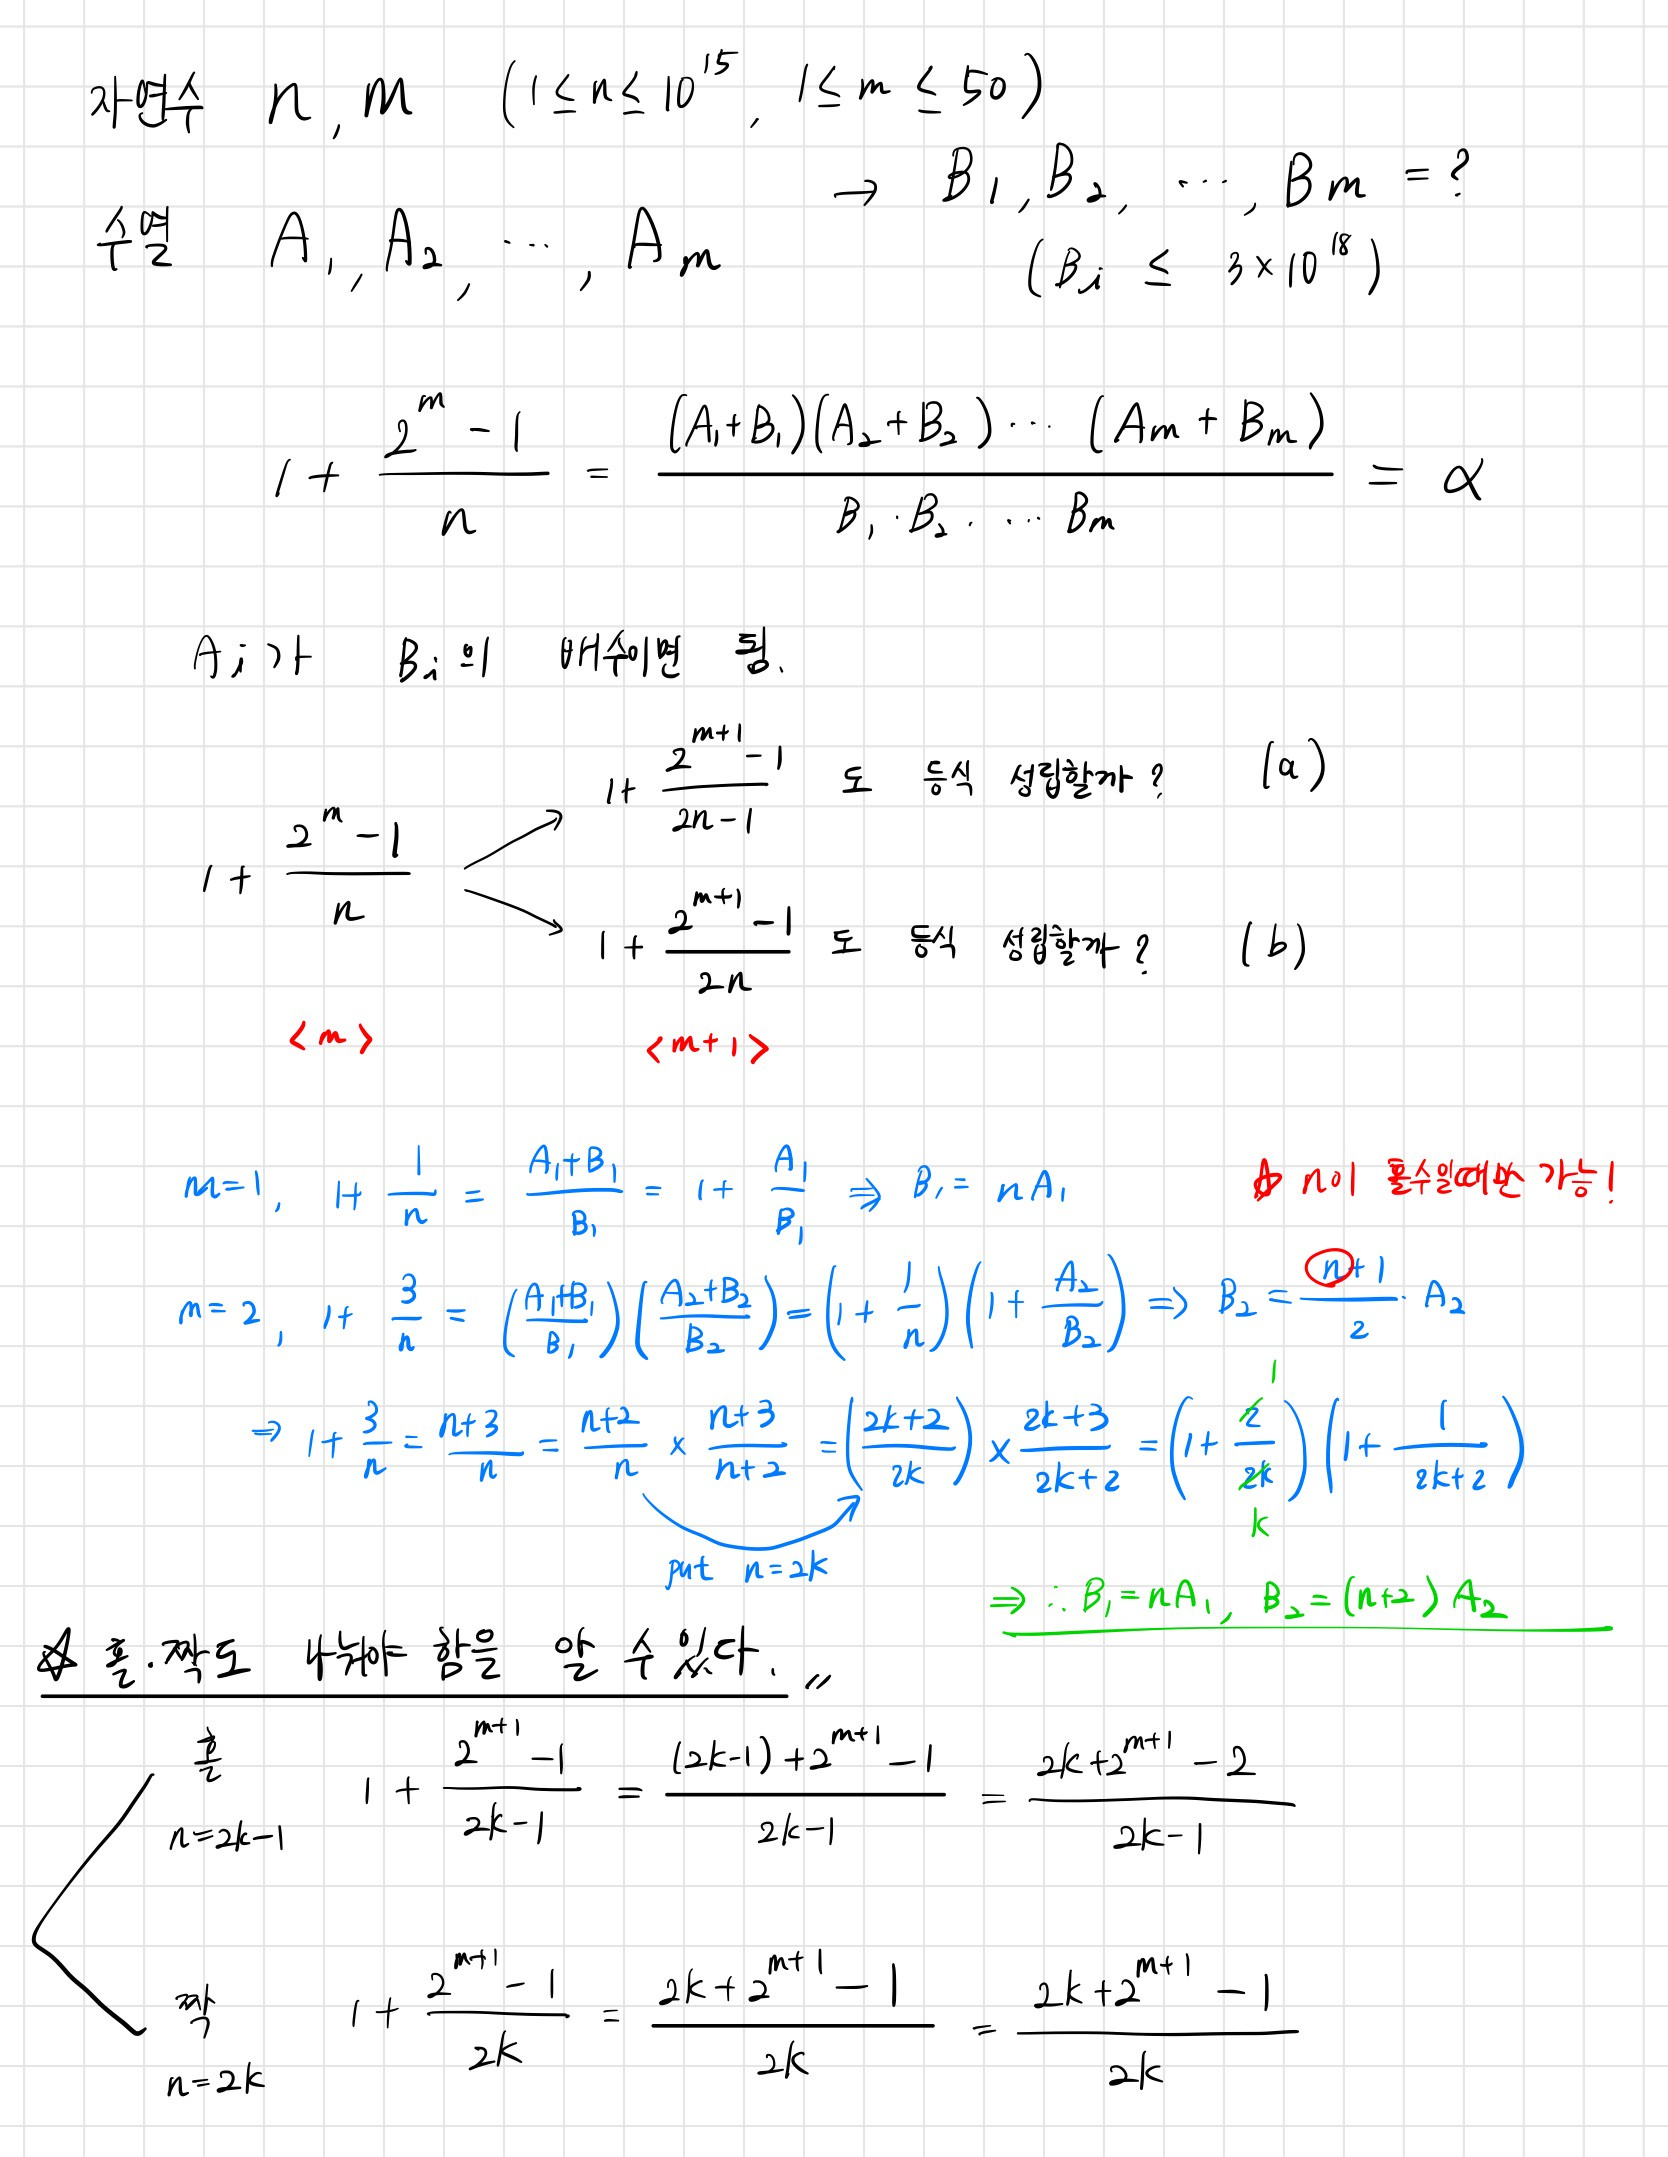 자연수 n, m (1≤n≤10^15, 1≤m≤50)
→ B₁, B₂, ⋯, Bm = ?
수열 A₁, A₂, ⋯, Am
(Bi ≤ 3×10^18)
1 + (2^m - 1)/n = (A₁+B₁)(A₂+B₂)⋯(Am+Bm) / B₁·B₂.⋯Bm = α
Ai가 Bi의 배수이면 됨.
1+ (2^(m+1) - 1)/(2n-1) 도 등식 성립할까? (a)
1+ (2^m - 1)/n
1+ (2^(m+1) - 1)/2n 도 등식 성립할까? (b)
<m> <m+1>
m=1, 1+ 1/n = (A₁+B₁)/B₁ = 1+ A₁/B₁ ⇒ B₁ = nA₁
☆ n이 홀수일때만 가능!
m=2, 1+ 3/n = ((A₁+B₁)/B₁)((A₂+B₂)/B₂) = (1+ 1/n)(1+ A₂/B₂) ⇒ B₂ = (n+1)/2 · A₂
⇒ 1+ 3/n = (n+3)/n = (n+2)/n × (n+3)/(n+2) = ((2k+2)/2k) × (2k+3)/(2k+2) = (1+ 2/2k)(1+ 1/(2k+2))
1
k
put n=2k
⇒ ∴ B₁=nA₁, B₂=(n+2)A₂
☆ 홀.짝도 나눠야 함을 알 수 있다. 〃
홀 n=2k-1 1+ (2^(m+1) - 1)/(2k-1) = ((2k-1)+2^(m+1) - 1)/(2k-1) = (2k+2^(m+1) - 2)/(2k-1)
짝 n=2k 1+ (2^(m+1) - 1)/2k = (2k+2^(m+1) - 1)/2k = (2k+2^(m+1) - 1)/2k